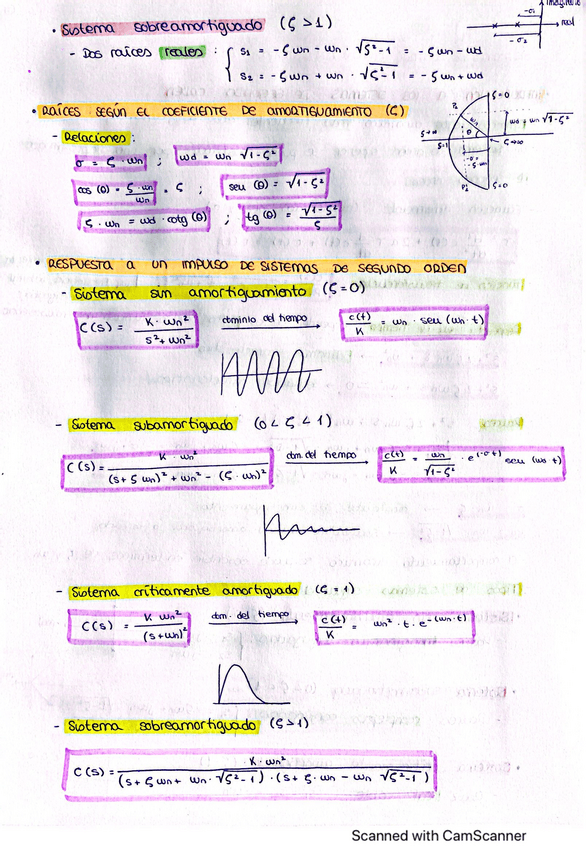 • Sistema sobreamortiguado (ζ > 1)
- Dos raíces reales : { s₁ = -ζωn - ωn · √ζ²-1 = -ζωn - ωd
s₂ = -ζωn + ωn · √ζ²-1 = -ζωn + ωd
-σ₁
-σ₂
• RAÍCES SEGÚN EL COEFICIENTE DE AMORTIGUAMIENTO (ζ)
ζ=0
- Relaciones :
σ = ζ · ωn ; ωd = ωn √1-ζ²
cos (θ) = ζ · ωn / ωn = ζ ; sen (θ) = √1-ζ²
ζ · ωn = ωd · cotg (θ) ; tg (θ) = √1-ζ² / ζ
ωn
θ
ζ=1
ζ=0
• RESPUESTA A UN IMPULSO DE SISTEMAS DE SEGUNDO ORDEN
- Sistema sin amortiguamiento (ζ=0)
C(s) = K · ωn² / s² + ωn² dominio del tiempo → c(t)/K = ωn · sen (ωn · t)
- Sistema subamortiguado (0 < ζ < 1)
C(s) = K · ωn² / (s + ζ ωn)² + ωn² - (ζ · ωn)² dom. del tiempo → c(t)/K = ωn / √1-ζ² · e^(-σ·t) sen (ωd · t)
- Sistema críticamente amortiguado (ζ = 1)
C(s) = K ωn² / (s+ωn)² dom. del tiempo → c(t)/K = ωn² · t · e^-(ωn·t)
- Sistema sobreamortiguado (ζ>1)
C(s) = K · ωn² / (s + ζ ωn + ωn · √ζ²-1) · (s + ζ · ωn - ωn √ζ²-1)
Scanned with CamScanner